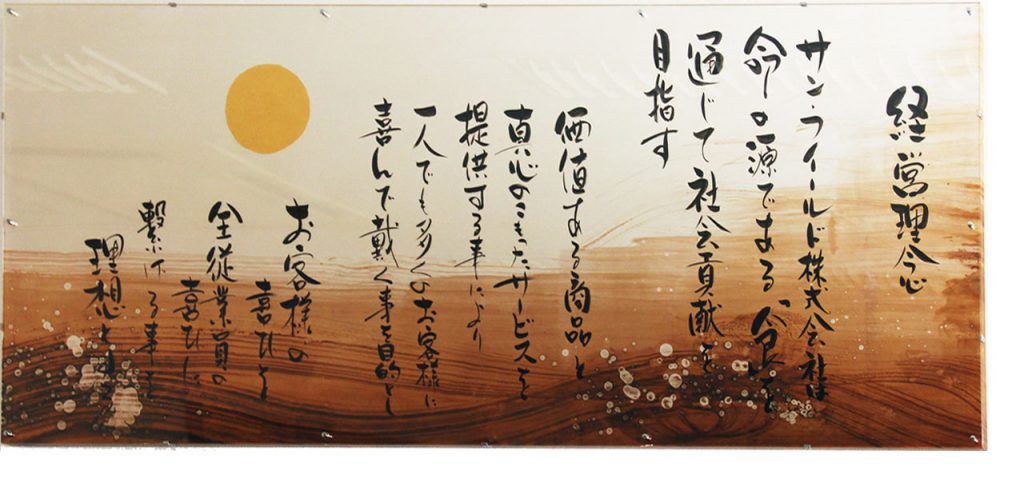 経営理念
サン・フィールド株式会社は
命の源である「食」を
通じて社会貢献を
目指す
価値ある商品と
真心のこもったサービスを
提供する事により
一人でも多くのお客様に
喜んで戴く事を目的とし
お客様の
喜びを
全従業員の
喜びに
繋げる事を
理想とする